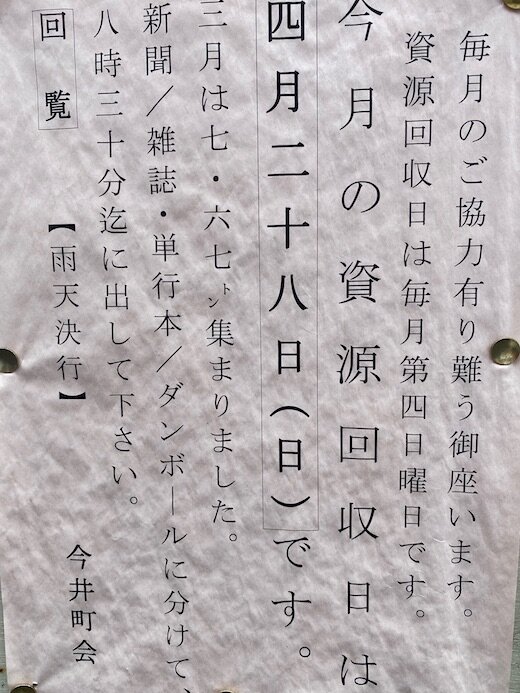 毎月のご協力有り難う御座います。
資源回収日は毎月第四日曜日です。
今月の資源回収日は
四月二十八日(日)です。
三月は七・六七㌧集まりました。
新聞/雑誌・単行本/ダンボールに分けて、
八時三十分迄に出して下さい。
回覧
【雨天決行】
今井町会